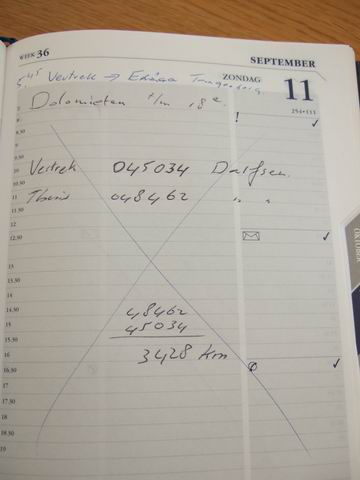 WEEK 36
SEPTEMBER
5.45 Vertrek → Tragenberg
ZONDAG 11
254•111
Dolomieten t/m 18e.
8
8.30
9
9.30
10 Vertrek 045034 Dalfsen.
10.30
11 Thuis 048462 " "
11.30
12
12.30
13
13.30
14
14.30 48462
15 45034
15.30
16 3428 Km
16.30
17
17.30
18
18.30
19
OKTOBER